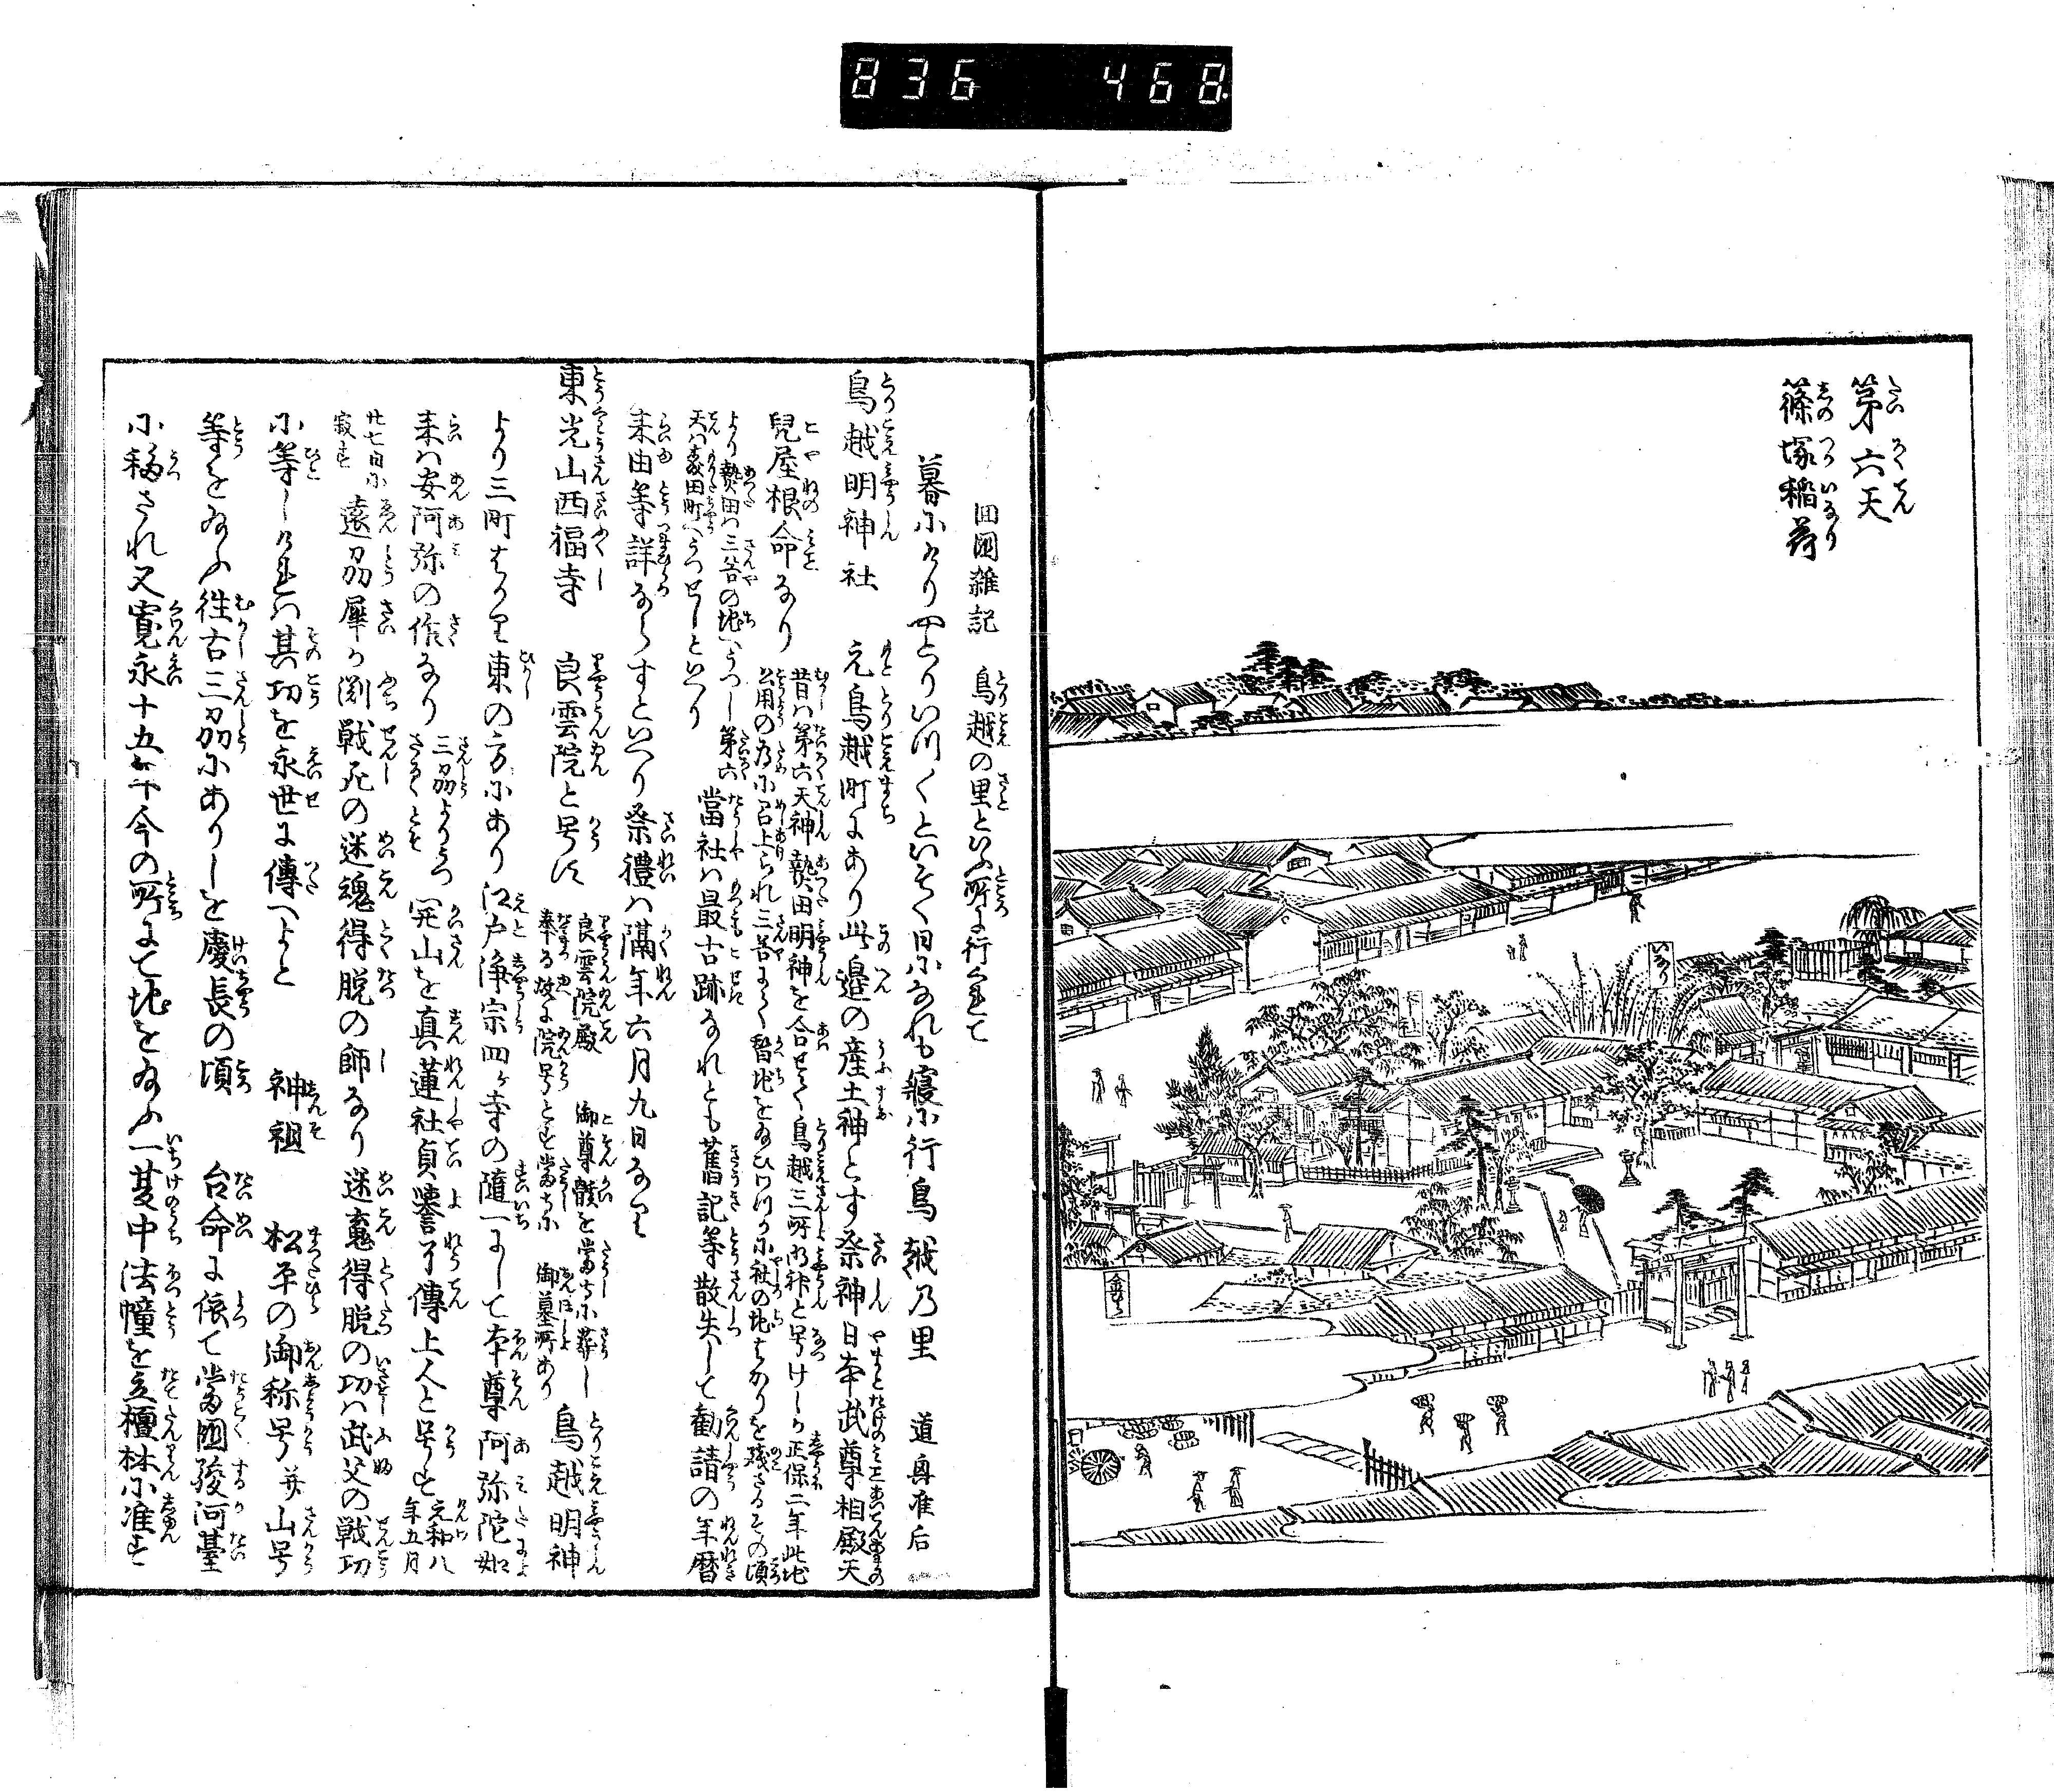 836 468
第六天
篠塚稲荷
いなり
回國雑記 鳥越の里といふ所に行くれて
暮にけりやとりいつくといそく日になれも寝に行鳥越乃里 道興准后
鳥越明神社 元鳥越町にあり此邉の産土神とす祭神日本武尊相殿天
兒屋根命なり 昔は第六天神熱田明神を合せて鳥越三所明神と号けしか正保二年此地
公用の為に召上られ三谷にて替地をたまひわつかに社の地はかりを残さるその頃
より熱田は三谷の地へうつし第六
天は森田町へうつせしといへり 當社は最古跡なれとも舊記等散失して勧請の年暦
来由等詳ならすといへり祭禮は隔年六月九日なり
東光山西福寺 良雲院と号す 良雲院殿 御尊骸を當寺に葬し
奉る故に院号とす當寺に 御墓所あり 鳥越明神
より三町はかり東の方にあり江戸浄宗四ヶ寺の随一にして本尊阿弥陀如
来は安阿弥の作なり 三刕よりうつ
さるゝとそ 開山を真蓮社貞誉了傳上人と号す 元和八
年五月
廿七日に
寂す 遠刕犀か渕戦死の迷魂得脱の師なり迷魂得脱の功は武夫の戦功
に等しけれは其功を永世に傳へよと 神祖 松平の御称号并山号
等をたまふ往古三刕にありしを慶長の頃 台命に依て當國駿河臺
に移され又寛永十五年今の所にて地をたまふ一夏中法幢を立檀林に准す